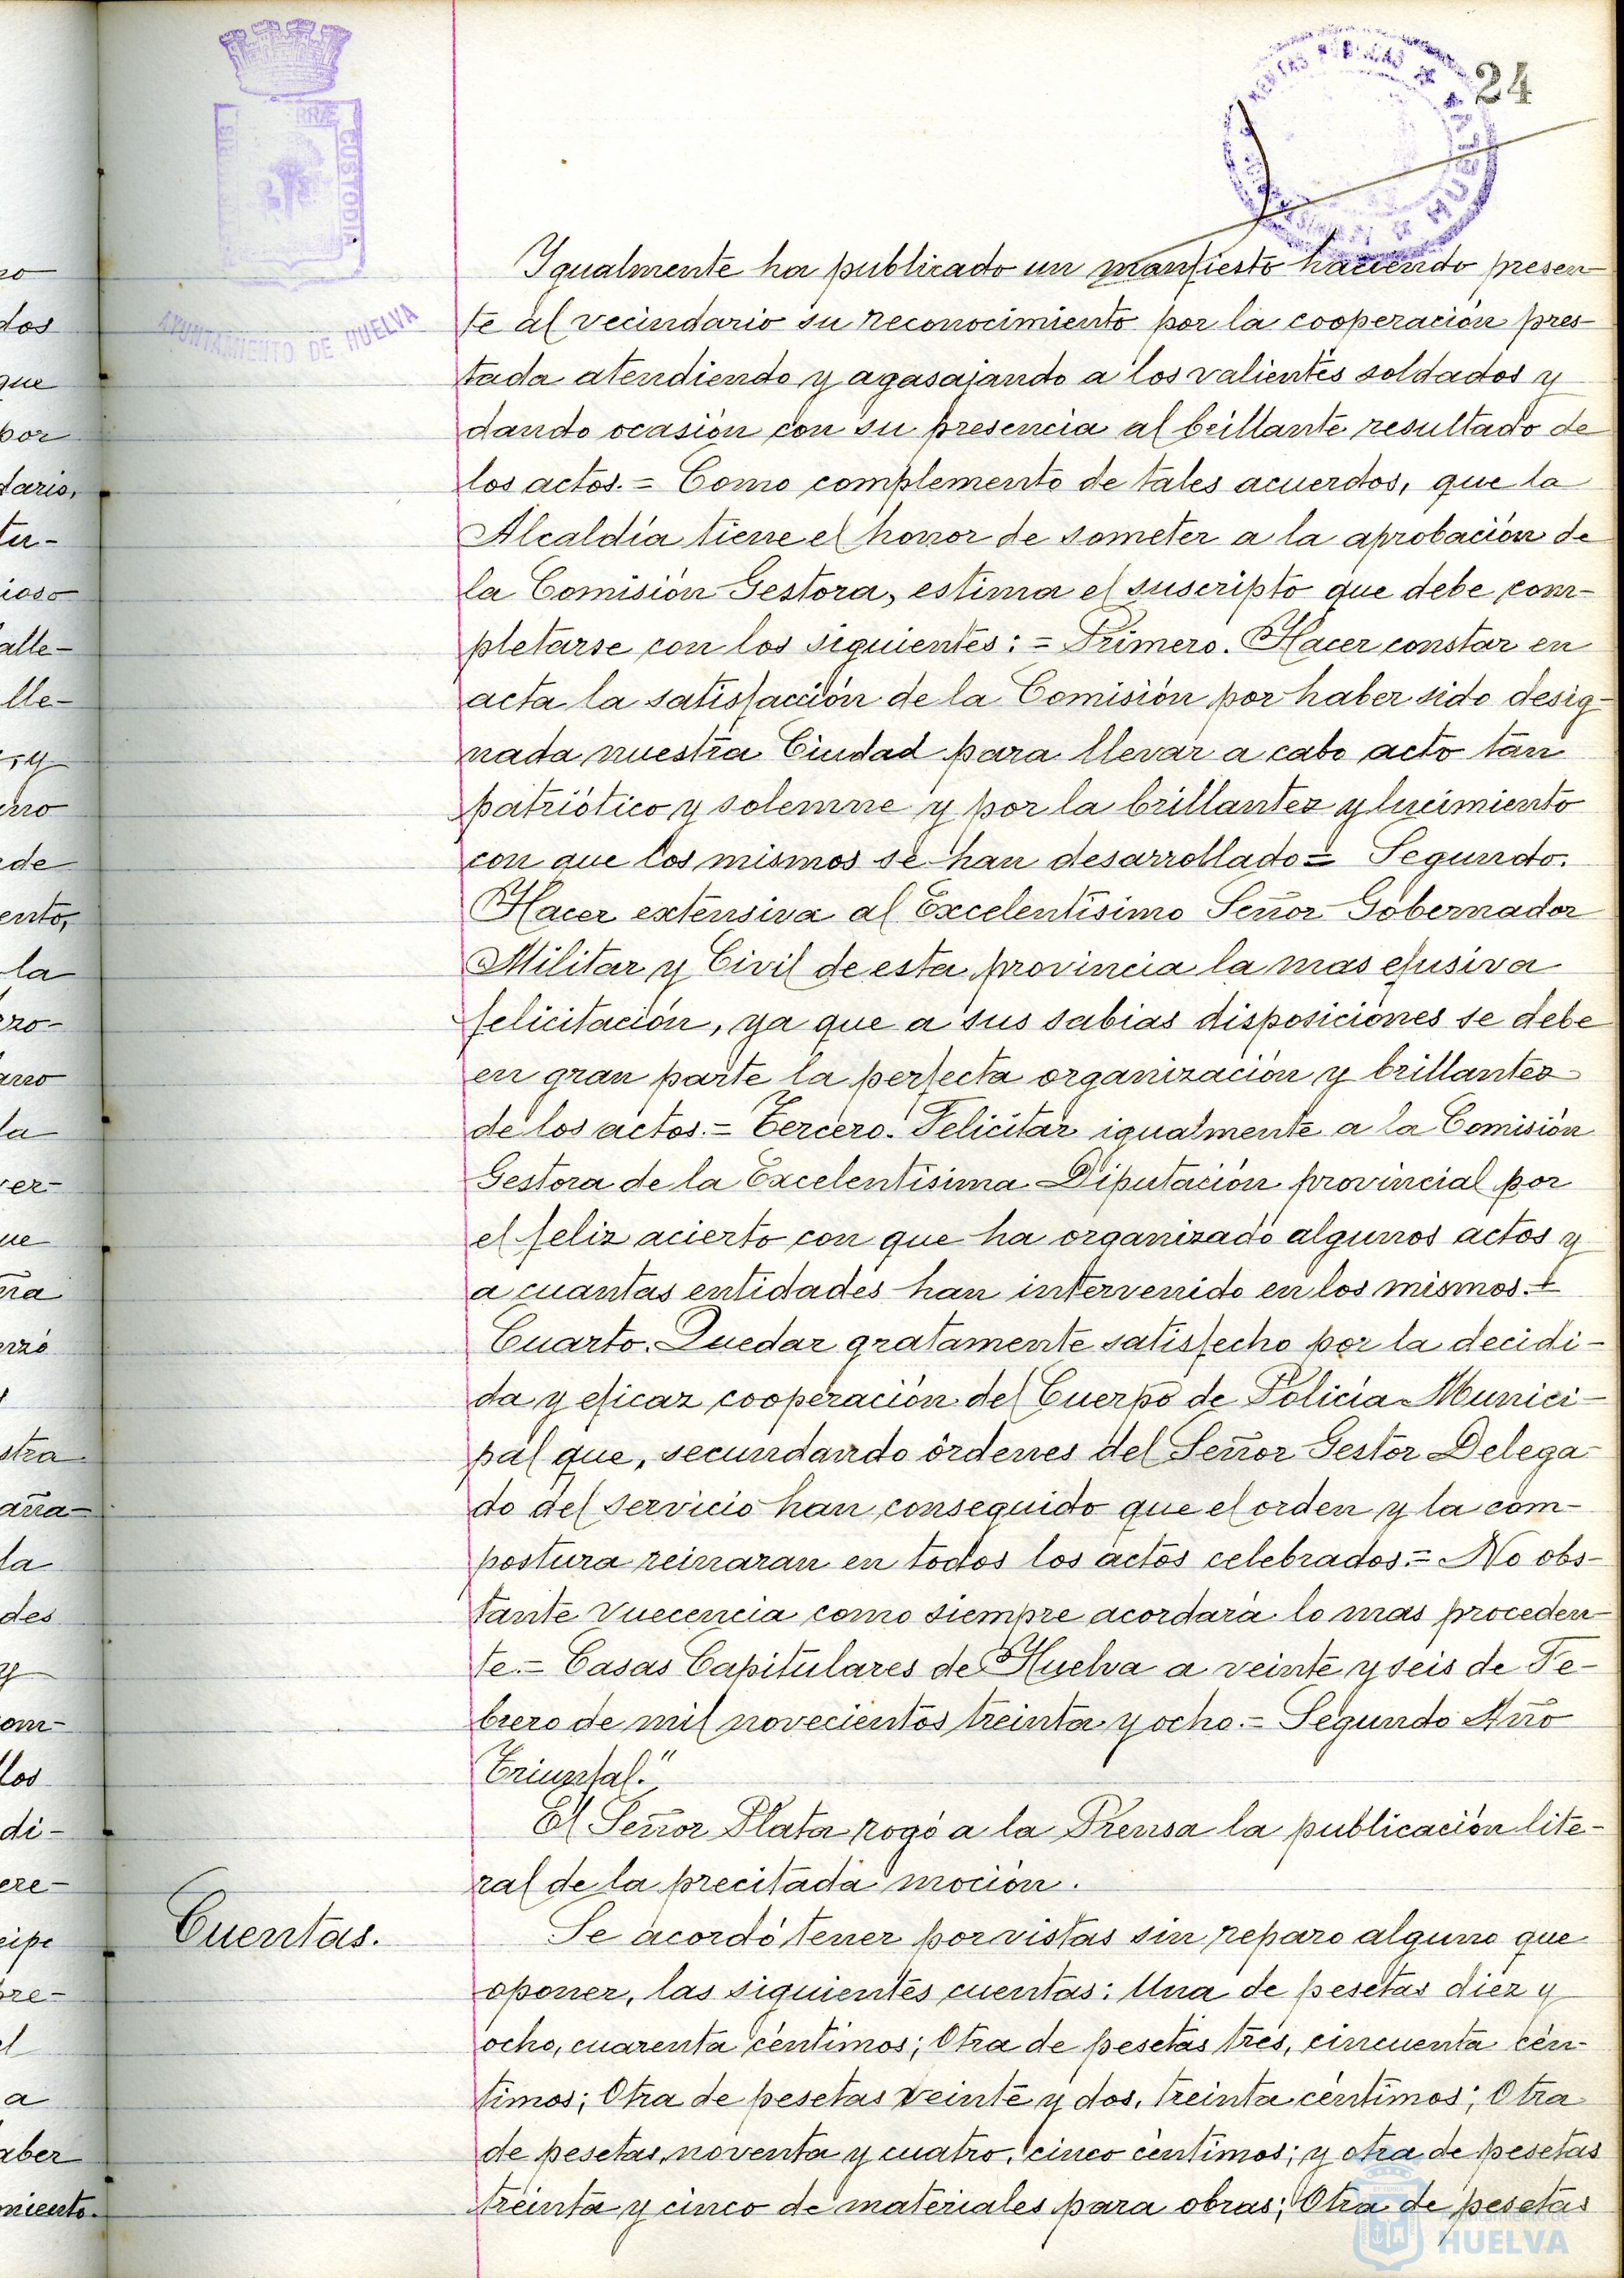 24
CUSTODIA
AYUNTAMIENTO DE HUELVA
HUELVA
Igualmente ha publicado un manfiesto haciendo presen-
te al vecindario su reconocimiento por la cooperación pres-
tada atendiendo y agasajando a los valientes soldados y
dando ocasión con su presencia al brillante resultado de
los actos.= Como complemento de tales acuerdos, que la
Alcaldía tiene el honor de someter a la aprobación de
la Comisión Gestora, estima el suscripto que debe com-
pletarse con los siguientes:= Primero. Hacer constar en
acta la satisfacción de la Comisión por haber sido desig-
nada nuestra Ciudad para llevar a cabo acto tan
patriótico y solemne y por la brillantez y lucimiento
con que los mismos se han desarrollado= Segundo.
Hacer extensiva al Excelentísimo Señor Gobernador
Militar y Civil de esta provincia la mas efusiva
felicitación, ya que a sus sabias disposiciones se debe
en gran parte la perfecta organización y brillantez
de los actos.= Tercero. Felicitar igualmente a la Comisión
Gestora de la Excelentísima Diputación provincial por
el feliz acierto con que ha organizado algunos actos y
a cuantas entidades han intervenido en los mismos.=
Cuarto. Quedar gratamente satisfecho por la decidi-
da y eficaz cooperación del Cuerpo de Policía Munici-
pal que, secundando órdenes del Señor Gestor Delega-
do del servicio han conseguido que el orden y la com-
postura reinaran en todos los actos celebrados.= No obs-
tante Vuecencia como siempre acordará lo mas proceden-
te.= Casas Capitulares de Huelva a veinte y seis de Fe-
brero de mil novecientos treinta y ocho.= Segundo Año
Triunfal."
El Señor Plata rogó a la Prensa la publicación lite-
ral de la precitada moción.
Cuentas.
Se acordó tener por vistas sin reparo alguno que
oponer, las siguientes cuentas: Una de pesetas diez y
ocho, cuarenta céntimos; Otra de pesetas tres, cincuenta cén-
timos; Otra de pesetas veinte y dos, treinta céntimos; Otra
de pesetas, noventa y cuatro, cinco céntimos; y otra de pesetas
treinta y cinco de materiales para obras; Otra de pesetas
Ayuntamiento de
HUELVA